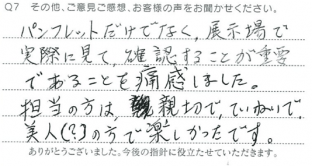 Q7 その他、ご意見ご感想、お客様の声をお聞かせください。
パンフレットだけでなく、展示場で
実際に見て、確認することが重要
であることを痛感しました。
担当の方は、親切で、ていねいで、
美人(?)の方で楽しかったです。
ありがとうございました。今後の指針に役立たせていただきます。